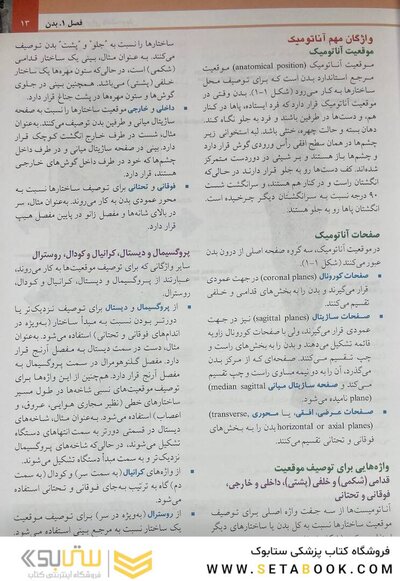 فصل ۱. بدن ۱۳
واژگان مهم آناتومیک
موقعیت آناتومیک
موقعیت آناتومیک (anatomical position) موقعیت
مرجع استاندارد بدن است که برای توصیف محل
ساختارها به کار می‌رود (شکل ۱-۱). بدن وقتی در
موقعیت آناتومیک قرار دارد که فرد ایستاده، پاها در کنار
هم، و دست‌ها در طرفین باشند و فرد به جلو نگاه کند.
دهان بسته و حالت چهره، خنثی باشد. لبه استخوانی زیر
چشم‌ها در همان سطح افقی رأس ورودی گوش قرار دارد
و چشم‌ها باز هستند و بر شیئی در دوردست متمرکز
شده‌اند. کف دست‌ها رو به جلو قرار دارند در حالی‌که
انگشتان راست و در کنار هم هستند، و سرانگشت شست
۹۰ درجه نسبت به سرانگشتان دیگر چرخیده است.
انگشتان پاها رو به جلو هستند.
صفحات آناتومیک
در موقعیت آناتومیک، سه گروه صفحه اصلی از درون بدن
عبور می‌کنند (شکل ۱-۱).
صفحات کورونال (coronal planes) در جهت عمودی
قرار می‌گیرند و بدن را به بخش‌های قدامی و خلفی
تقسیم می‌کنند.
صفحات ساژیتال (sagittal planes) نیز در جهت
عمودی قرار می‌گیرند، ولی با صفحات کورونال زاویه
قائمه تشکیل می‌دهند و بدن را به بخش‌های راست و
چپ تقسیم می‌کنند. صفحه‌ای که از مرکز بدن
می‌گذرد، آن را به دو نیمه مساوی راست و چپ تقسیم
می‌کند و صفحه ساژیتال میانی (median sagittal
plane) نامیده می‌شود.
صفحات عرضی، افقی، یا محوری (transverse,
horizontal or axial planes) بدن را به بخش‌های
فوقانی و تحتانی تقسیم می‌کنند.
واژه‌هایی برای توصیف موقعیت
قدامی (شکمی) و خلفی (پشتی)، داخلی و خارجی،
فوقانی و تحتانی
آناتومیست‌ها از سه جفت واژه اصلی برای توصیف
موقعیت ساختارها نسبت به کل بدن یا ساختارهای دیگر
ساختارها را نسبت به "جلو" و "پشت" بدن توصیف
می‌کنند. به عنوان مثال، بینی یک ساختار قدامی
(شکمی) است، در حالی‌که ستون مهره‌ها یک ساختار
خلفی (پشتی) می‌باشد. همچنین بینی در جلوی
گوش‌ها و ستون مهره‌ها در پشت جناغ قرار دارد.
داخلی و خارجی موقعیت ساختارها را نسبت به صفحه
ساژیتال میانی و طرفین بدن توصیف می‌کنند. به‌عنوان
مثال، شست در طرف خارج انگشت کوچک قرار
دارد. بینی در صفحه ساژیتال میانی و در طرف داخل
چشم‌ها که خود در طرف داخل گوش‌های خارجی
هستند، قرار دارد.
فوقانی و تحتانی برای توصیف ساختارها نسبت به
محور عمودی بدن به کار می‌روند. به‌عنوان مثال، سر
در بالای شانه‌ها و مفصل زانو در پایین مفصل هیپ
قرار دارد.
پروگسیمال و دیستال، کرانیال و کودال، روسترال
سایر واژگانی که برای توصیف موقعیت‌ها به کار می‌روند،
عبارتند از پروگسیمال و دیستال، کرانیال و کودال، و
روسترال.
از پروگسیمال و دیستال برای توصیف نزدیک‌تر یا
دورتر بودن نسبت به مبدأ ساختار (به‌ویژه در
اندام‌های فوقانی و تحتانی) استفاده می‌شود. به‌عنوان
مثال، دست در سمت دیستال به مفصل آرنج قرار
دارد. مفصل گلنوهومرال در سمت پروگسیمال به
مفصل آرنج قرار دارد. همچنین از این واژه‌ها برای
توصیف موقعیت‌های نسبی شاخه‌ها در طول مسیر
ساختارهای خطی (نظیر مجاری هوایی، عروق، و
اعصاب) استفاده می‌شود. به‌عنوان مثال، شاخه‌های
دیستال در قسمتی دورتر به سمت انتهاهای دستگاه
تشکیل می‌شوند، در حالی‌که شاخه‌های پروگسیمال
نزدیک‌تر و به سمت مبدأ دستگاه تشکیل می‌شوند.
از واژه‌های کرانیال (به سمت سر) و کودال (به سمت
دم) گاه به ترتیب به‌جای فوقانی و تحتانی استفاده
می‌شود.
از روسترال (به‌ویژه در سر) برای توصیف موقعیت
یک ساختار نسبت به مرجع بینی استفاده می‌شود.
فروشگاه کتاب پزشکی ستابوک
WWW.SETABOOK.COM
ستابوک
فروشگاه اینترنتی کتاب